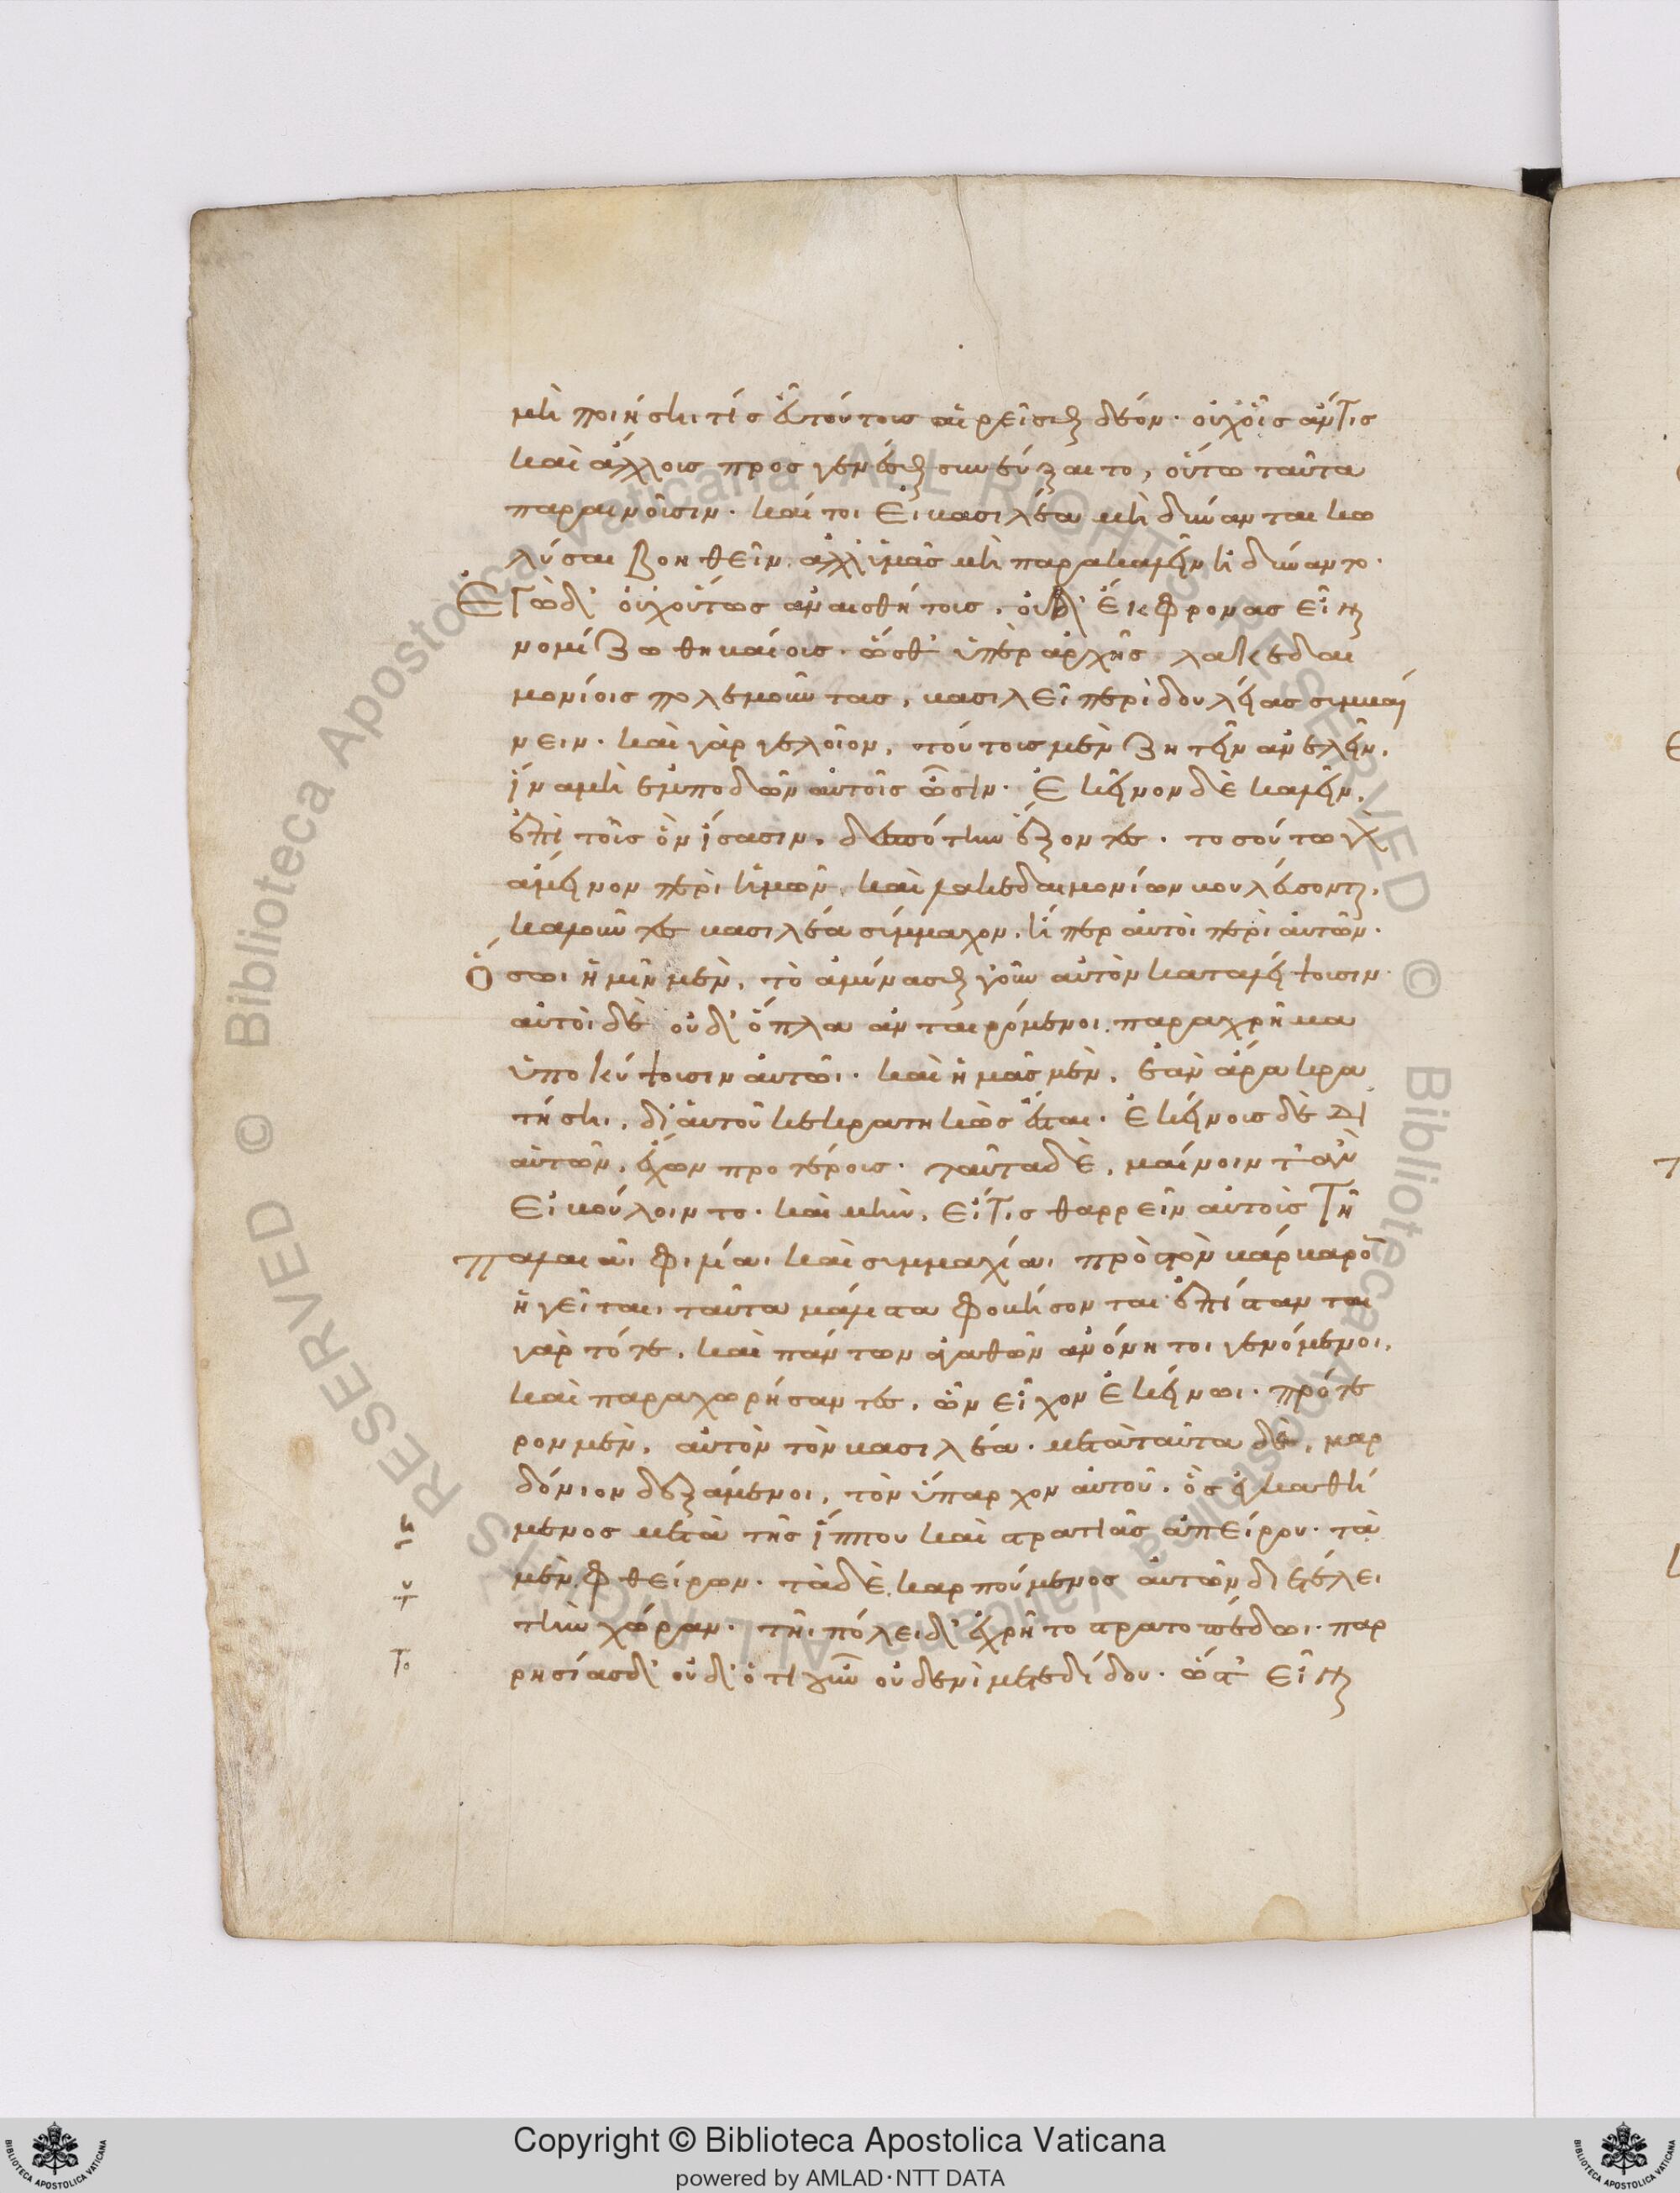 μὴ ποιήσῃ τίς ἐν τούτοις αἱρεῖσθαι δέον. οὐχ οἷς ἄν τις
καὶ ἄλλοις προσγενέσθαι συνεύξαιτο, οὕτω ταῦτα
παραινοῦσιν. καίτοι εἰ βασιλέα μὴ δύνανται κω
λῦσαι βοηθεῖν. ἀλλ' ὑμᾶς μὴ παρακαλεῖν ἠδύναντο.
Ἐγὼ δ' οὐχ οὕτως ἀναισθήτους. οὐδ' ἔκφρονας εἶναι
νομίζω θηβαίους. ὥσθ' ὑπὲρ ἀρχῆς λακεδαι
μονίοις πολεμοῦντας, βασιλεῖ περὶ δουλείας συμβαί
νειν. καὶ γὰρ γελοῖον, τούτους μὲν ζητεῖν ἀνελεῖν,
ἵνα μὴ ἐμποδὼν αὐτοῖς ὦσιν. ἐκεῖνον δὲ καλεῖν,
ἐπὶ τοῖς ὃν ἴσασιν, δεσπότην ἕξοντες. τοσούτω γὰρ
ἄμεινον περὶ ἡμῶν, καὶ λακεδαιμονίων βουλεύονται,
καλοῦντες βασιλέα σύμμαχον, ἤπερ αὐτοὶ περὶ αὑτῶν.
Ὅσωι ἡμῖν μὲν, τὸ ἀμύνασθαι γοῦν αὐτὸν καταλείψουσιν
αὐτοὶ δὲ οὐδ' ὅπλα ἀνταιρόμενοι. παραχρῆμα
ὑποκύψουσιν αὐτῶι. καὶ ἡμᾶς μὲν, ἐὰν ἄρα κρα
τήσῃ, δι' αὑτοῦ κεκρατηκὼς ἔσται. ἐκείνοις δὲ δι'
αὐτῶν, ἑκὼν προτέροις. ταῦτα δὲ, μαίνοιντ' ἂν
εἰ βούλοιντο. καὶ μὴν, εἴ τις θαρρεῖν αὐτοὺς τῆ
παλαιᾶι φιλίαι καὶ συμμαχίαι πρὸς τὸν βάρβαρον
ἡγεῖται, ταῦτα μάλιστα φοβήσονται· ἐπίστανται
γὰρ τότε, καὶ πάντων ἀγαθῶν ἀνόνητοι γενόμενοι,
καὶ παραχωρήσαντες, ὧν εἶχον ἐκείνωι. πρότε
ρον μὲν, αὐτὸν τὸν βασιλέα. μετὰ ταῦτα δὲ, μαρ
δόνιον δεξάμενοι, τὸν ὕπαρχον αὐτοῦ. ὃς ἐγκαθή
μενος μετὰ τῆς ἵππου καὶ στρατιᾶς ἀπείρου. τὰ
μὲν φθείρων. τὰ δὲ καρπούμενος αὐτῶν διετέλει
τὴν χώραν. τῆι πόλει δ' ἐχρῆτο στρατοπέδωι. παρ
ρησίας δ' οὐδ' ὁτιγοῦν οὐδενὶ μετεδίδου. ὥστ' εἶναι